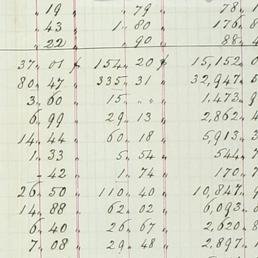 " 19 " 79 " 78 "
" 43 1 " 80 176 " 8
" 22 " 90 88 " 4
37 " 01 154 " 20 15,152 " 0
80 " 47 335 " 31 32,947 " 5
3 " 60 15 " " " 1,473 " 9
6 " 99 29 " 13 2,862 " 4
14 " 44 60 " 18 5,913 " 3
1 " 33 5 " 54 544 " 7
- " 42 1 " 74 170 " 7
26 " 50 110 " 40 10,847 " 9
14 " 88 62 " 02 6,093 "
6 " 40 26 " 67 2,620 " 8
7 " 08 29 " 48 2,897 " 1